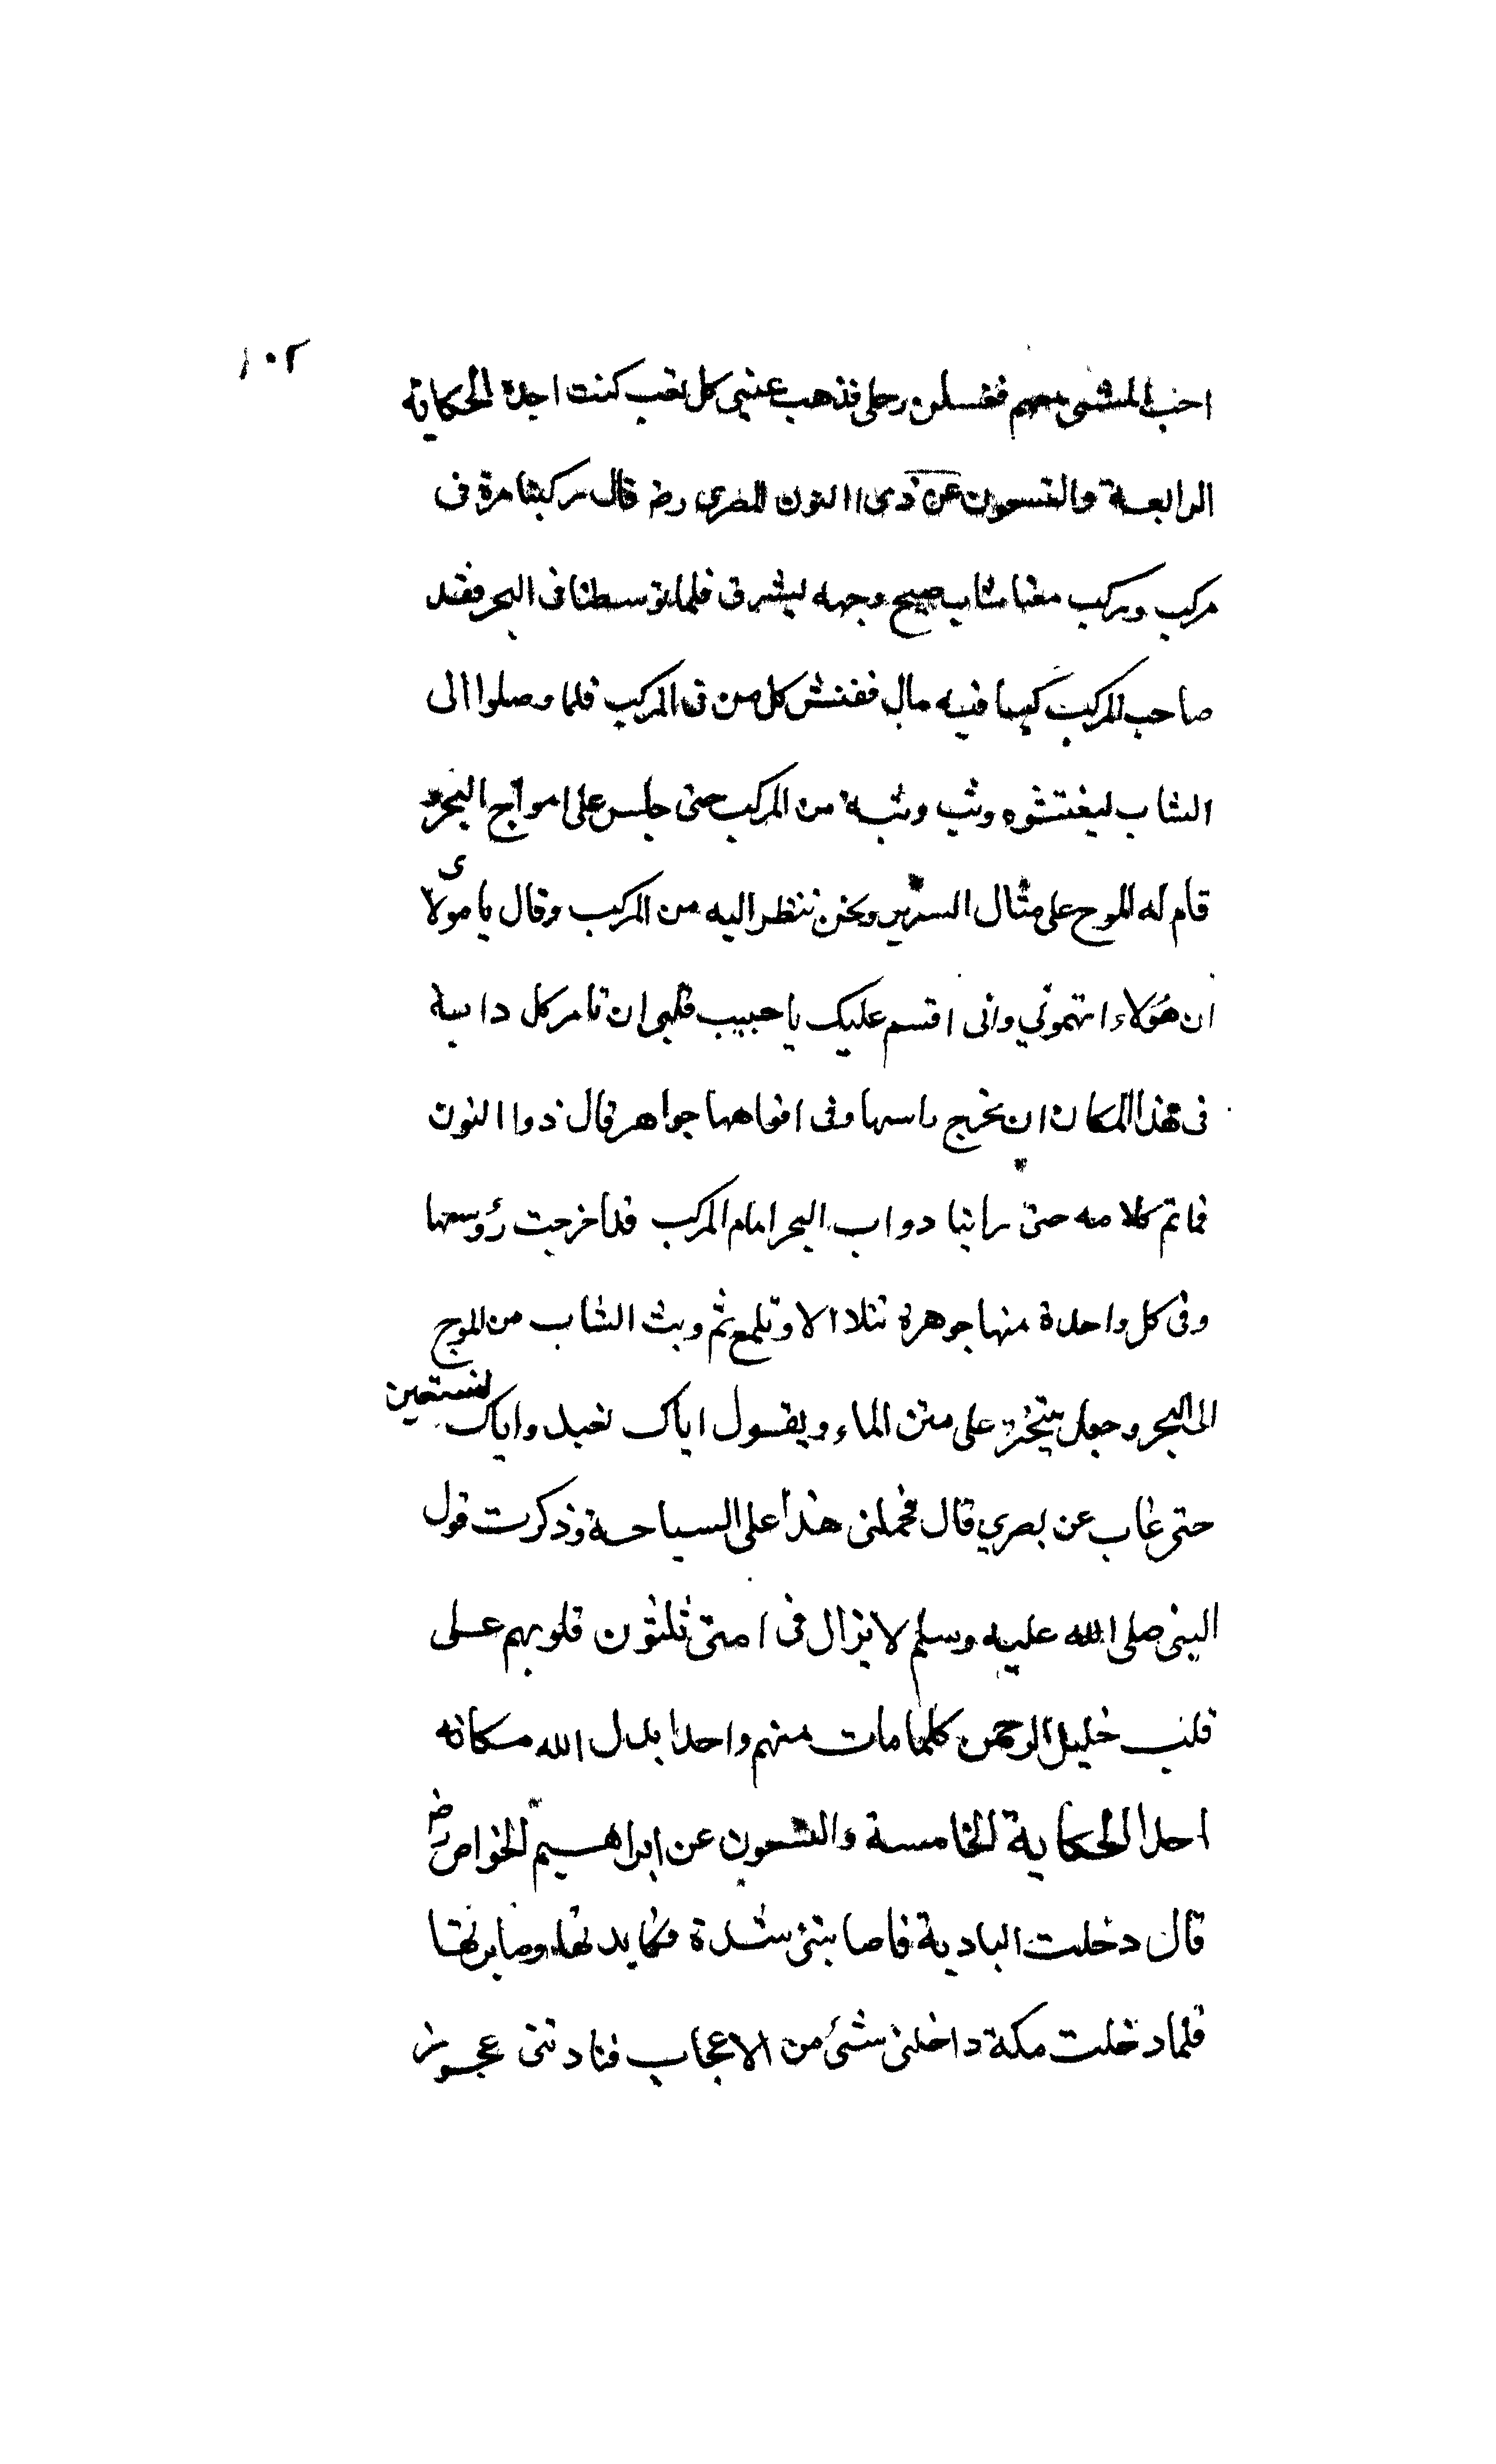 ١٠٢
احب المشى معهم فغسلن رجلى فذهب عنى كل تعب كنت اجدة الحكاية
الرابعة والتسعون عن ذى االنون المصرى رضـ قال ركبنا مرة فى
مركب وركب معنا شاب صبيح وجهه ليشرق فلما توسطنا فى البحر فقد
صاحب المركب كيسا فيه مال ففتش كل من فى المركب فلما وصلوا الى
الشاب ليفتشوه وثب وثبة من المركب حتى جلس على امواج البحر و
قام له الموج على مثال السرير ونحن ننظر اليه من المركب وقال يا مولاى
ان هؤلاء اتهمونى وانى اقسم عليك يا حبيب قلبى ان تامر كل دابة
فى هذا المكان ان تخرج راسها وفى افواهها جواهر قال ذوا النون
فما تم كلامه حتى راينا دواب البحر امام المركب قد اخرجت رؤسها
وفى كل واحدة منها جوهرة تتلاالا وتلمع ثم وبث الشاب من الموج
الى البحر وجعل يتبختر على متن الماء ويقول اياك نعبد واياك نستعين
حتى غاب عن بصرى قال فحملنى هذا على السياحة وذكرت قول
النبى صلى الله عليه وسلم لا يزال فى امتى ثلثون قلوبهم على
قلب خليل الرحمن كلما مات منهم واحدا بدل الله مكانه
احدا الحكاية الخامسة والتسعون عن ابراهيم الخواص رضـ
قال دخلت البادية فاصابتنى شدة فكابدتها وصابرتها
فلما دخلت مكة داخلنى شئ من الاعجاب فنادتنى عجوز